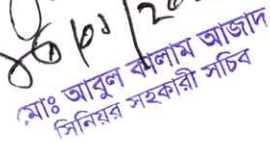 মোঃ আবুল কালাম আজাদ
সিনিয়র সহকারী সচিব